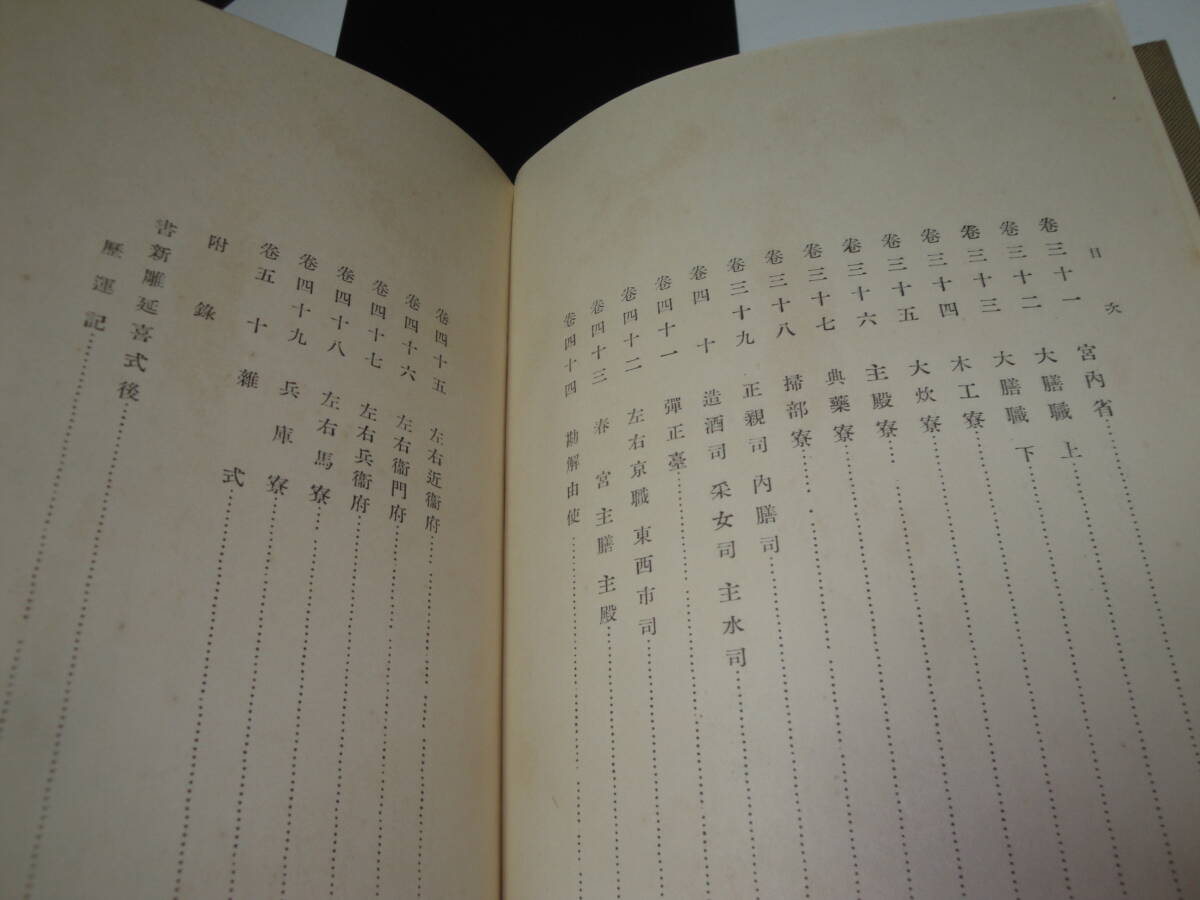 目次
卷三十一 宮內省
卷三十二 大膳職 上
卷三十三 大膳職 下
卷三十四 木工寮
卷三十五 大炊寮
卷三十六 主殿寮
卷三十七 典藥寮
卷三十八 掃部寮
卷三十九 正親司 內膳司
卷四十 造酒司 采女司 主水司
卷四十一 彈正臺
卷四十二 左右京職 東西市司
卷四十三 春宮 主膳 主殿
卷四十四 勘解由使
卷四十五 左右近衞府
卷四十六 左右衞門府
卷四十七 左右兵衞府
卷四十八 左右馬寮
卷四十九 兵庫寮
卷五十 雜式
附錄
書新雕延喜式後
歷運記